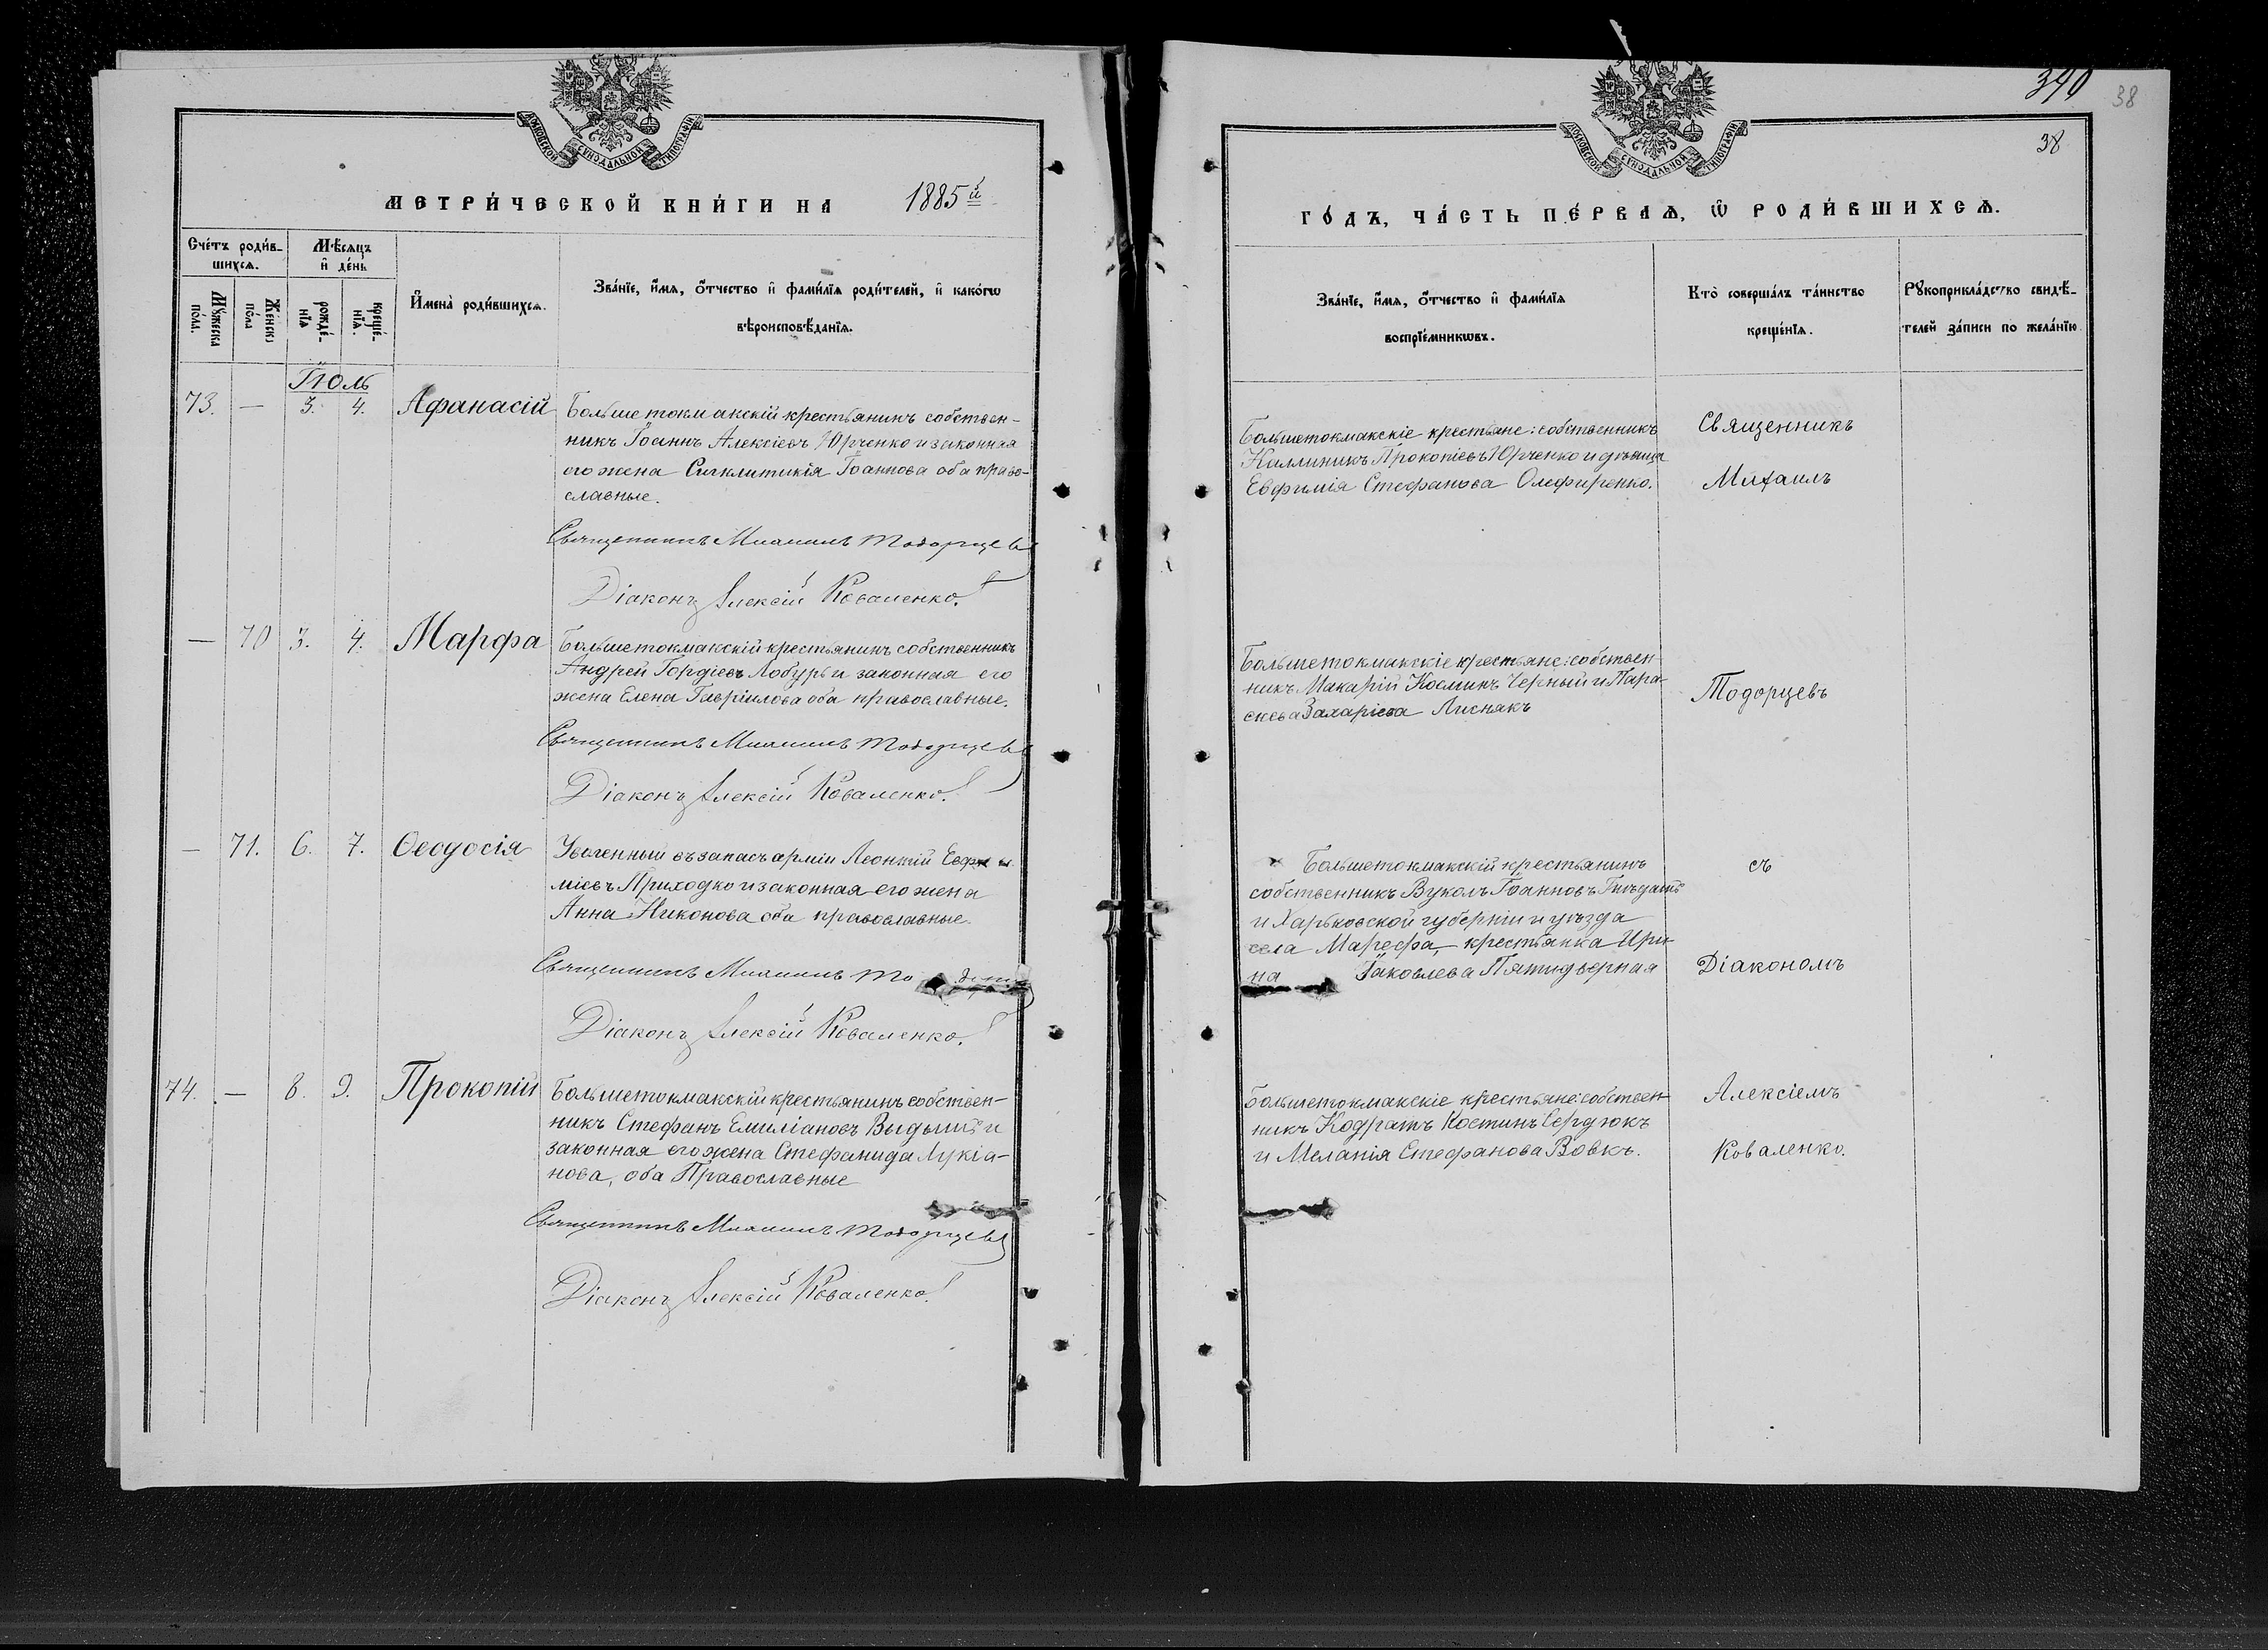 МОСКОВСКОЙ СѴНОДАЛЬНОЙ ТИПОГРАФІИ
МЕТРИ́ЧЕСКОЙ КНИ́ГИ НА 1885й
Сче́тъ роди́в-
шихсѧ.
Мѣ́сѧцъ
и҆ де́нь
Мꙋ́жеска
по́ла.
Же́нска
по́ла
рожде́-
нїѧ
креще́-
нїѧ.
И҆мена̀ роди́вшихсѧ.
Зва́нїе, и҆́мѧ, ѻ҆́тчество и҆ фами́лїѧ роди́телей, и҆ како́гѡ
вѣроисповѣ́данїѧ.
Іюль
73. — 3. 4. Афанасій
Большетокмакскій крестьянинъ собствен-
никъ Іоаннъ Алексіевъ Юрченко и законная
его жена Сигклитикія Іоаннова оба право-
славные.
Священникъ Михаилъ Тодорцевъ
Діаконъ Алексій Коваленко.
— 70 3. 4. Марфа
Большетокмакскій крестьянинъ собственникъ
Андрей Гордіевъ Лобурь и законная его
жена Елена Гавріилова оба православные.
Священникъ Михаилъ Тодорцевъ
Діаконъ Алексій Коваленко.
— 71. 6. 7. Ѳеодосія
Уволенный въ запасъ арміи Леонтій Евфи
міевъ Приходко и законная его жена
Анна Никонова оба православные.
Священникъ Михаилъ
Діаконъ Алексій Коваленко.
74. — 8. 9. Прокопій
Большетокмакскій крестьянинъ собствен-
никъ Стефанъ Емиліановъ и
законная его жена Стефанида Лукіа-
нова, оба Православные
Священникъ Михаилъ Тодорцевъ
Діаконъ Алексій Коваленко.
340
38
38
МОСКОВСКОЙ СѴНОДАЛЬНОЙ ТИПОГРАФІИ
ГО́ДЪ, ЧА́СТЬ ПЕ́РВАѦ, Ѽ РОДИ́ВШИХСѦ.
Зва́нїе, и҆́мѧ, ѻ҆́тчество и҆ фами́лїѧ
воспрїе́мникѡвъ.
Кто̀ соверша́лъ та́инство
креще́нїѧ.
Рꙋкоприкла́дство свидѣ́-
телей за́писи по жела́нїю
Большетокмакскіе крестьяне: собственникъ
Каллиникъ Прокопіевъ Юрченко и дѣвица
Евфимія Стефанова Олефиренко.
Священникъ
Михаилъ
Большетокмакскіе крестьяне: собствен-
никъ Макарій Косминъ Черный и Пара-
скева Захаріева Лиснякъ
Тодорцевъ
Большетокмакскій крестьянинъ
собственникъ Вуколъ Іоанновъ
и Харьковской губерніи и уѣзда
села Марефа, крестьянка Ири-
на Іаковлева Пятидверная
съ
Діакономъ
Большетокмакскіе крестьяне: собствен-
никъ Кодратъ Костинъ Сердюкъ
и Меланія Стефанова Вовкъ.
Алексіемъ
Коваленко.